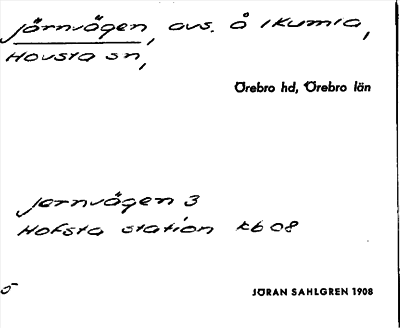 järnvägen, avs. å Ikumla,
Hovsta sn,
Örebro hd, Örebro län
jernvägen 3
Hofsta station kb 08
5
JÖRAN SAHLGREN 1908